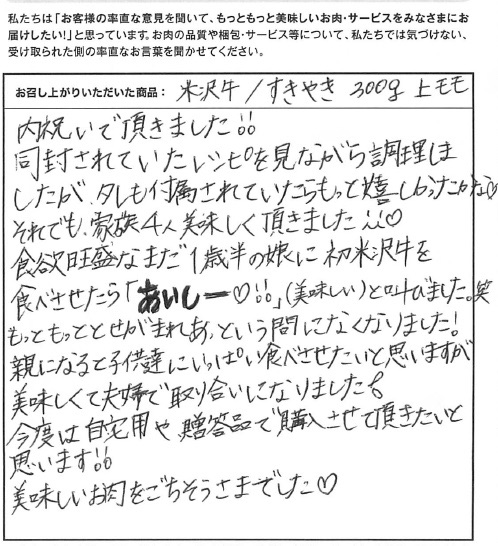 私たちは「お客様の率直な意見を聞いて、もっともっと美味しいお肉・サービスをみなさまにお
届けしたい!」と思っています。お肉の品質や梱包・サービス等について、私たちでは気づけない、
受け取られた側の率直なお言葉を聞かせてください。
お召し上がりいただいた商品： 米沢牛/すきやき 300g 上モモ
内祝いで頂きました!!
同封されていたレシピを見ながら調理しま
したが、タレも付属されていたらもっと嬉しかったかな♡
それでも、家族4人美味しく頂きました!!♡
食欲旺盛なまだ1歳半の娘に初米沢牛を
食べさせたら「おいしー♡!!」(美味しい)と叫びました。笑
もっともっととせがまれ、あっという間になくなりました!
親になると子供達にいっぱい食べさせたいと思いますが
美味しくて夫婦で取り合いになりました。
今度は自宅用や贈答品で購入させて頂きたいと
思います!!
美味しいお肉をごちそうさまでした♡